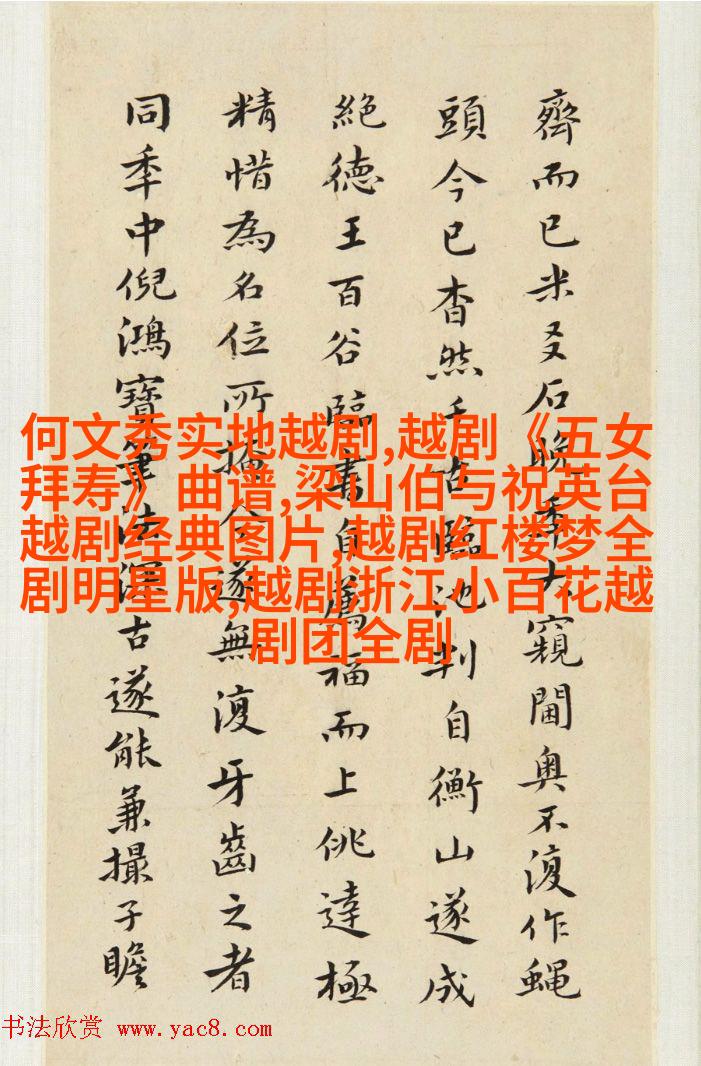 齊而已米友石晚秊大窺閫奥不復作蝇
頭今已杳然千古臨池判自衡山遂成
絶德王百谷臨書自薦福而上佻達極
精惜為名位所掩今遂無復牙齒之者
同秊中倪鴻寶筆法深古遂能兼撮子瞻
何文秀实地越剧,越剧《五女
拜寿》曲谱,梁山伯与祝英台
越剧经典图片,越剧红楼梦全
剧明星版,越剧浙江小百花越
剧团全剧
书法欣赏 www.yac8.com